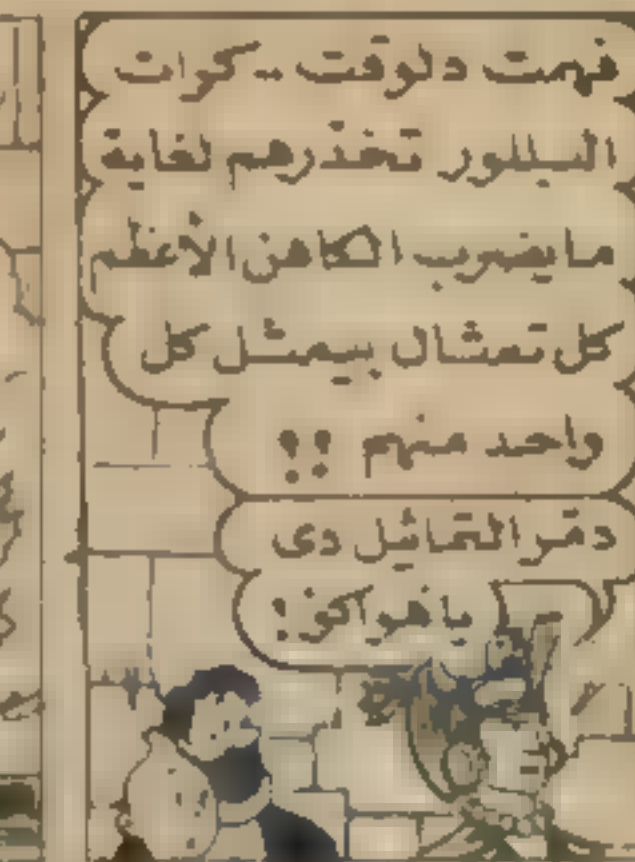 فهمت دلوقت .. كرات
البللور تخدرهم لغاية
ما يضرب الكاهن الأعظم
كل تمثال بيمثل كل
واحد منهم !!
دمر التماثيل دى
ياهواكو !